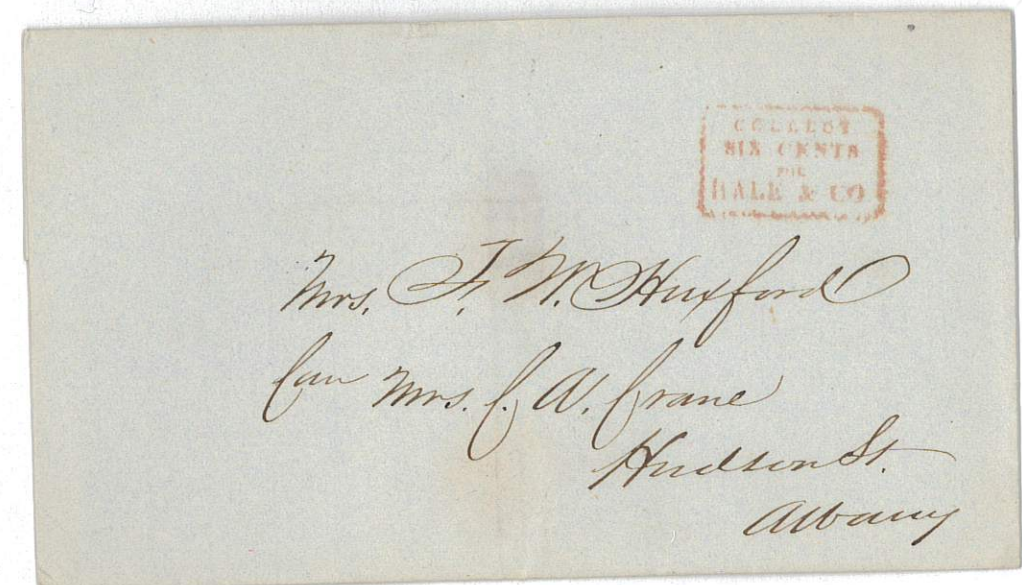 COLLECT
SIX CENTS
FOR
HALE & CO
Mrs. F. W. Huxford
Care Mrs. C. W. Crane
Hudson St.
Albany